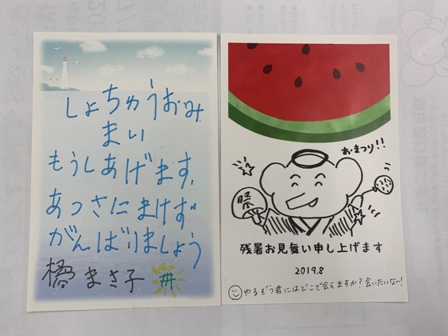 しょちゅうおみ
まい
もうしあげます。
あつさにまけず
がんばりましょう
橋 まさ子
おまつり!!
祭
残暑お見舞い申し上げます
2019.8
やるぞう君にはどこで会えますか?会いたいな〜!